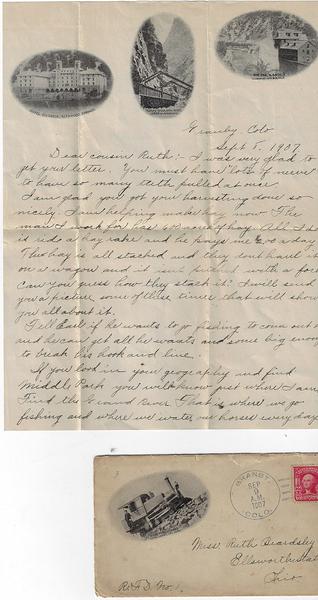 HOTEL COLORADO, GLENWOOD SPRINGS
Granby, Colo
Sept 8, 1907
Dear cousin Ruth:- I was very glad to
get your letter. You must have lots of nerve
to have so many teeth pulled at once.
I am glad you got your harvesting done so
nicely. I am helping make hay now The
man I work for has acres of hay. All I do
is ride a hay rake and he pays me a day
This hay is all stacked and they dont haul it
on a wagon and it isnt pitched with a fork
Can you guess how they stack it? I will send
you a picture some of these times that will show
you all about it.
Tell Earl if he wants to go fishing to come out
and he can get all he wants and some big enough
to break his hook and line.
If you look in your geography and find
Middle Park you will know just where I am
Find the Grand River That is where we go
fishing and where we water our horses every day
GRANBY
SEP
9
A.M.
1907
COLO.
Miss. Ruth Beardsley
Ellsworth Sta
Ohio
R.F.D. No. 1.